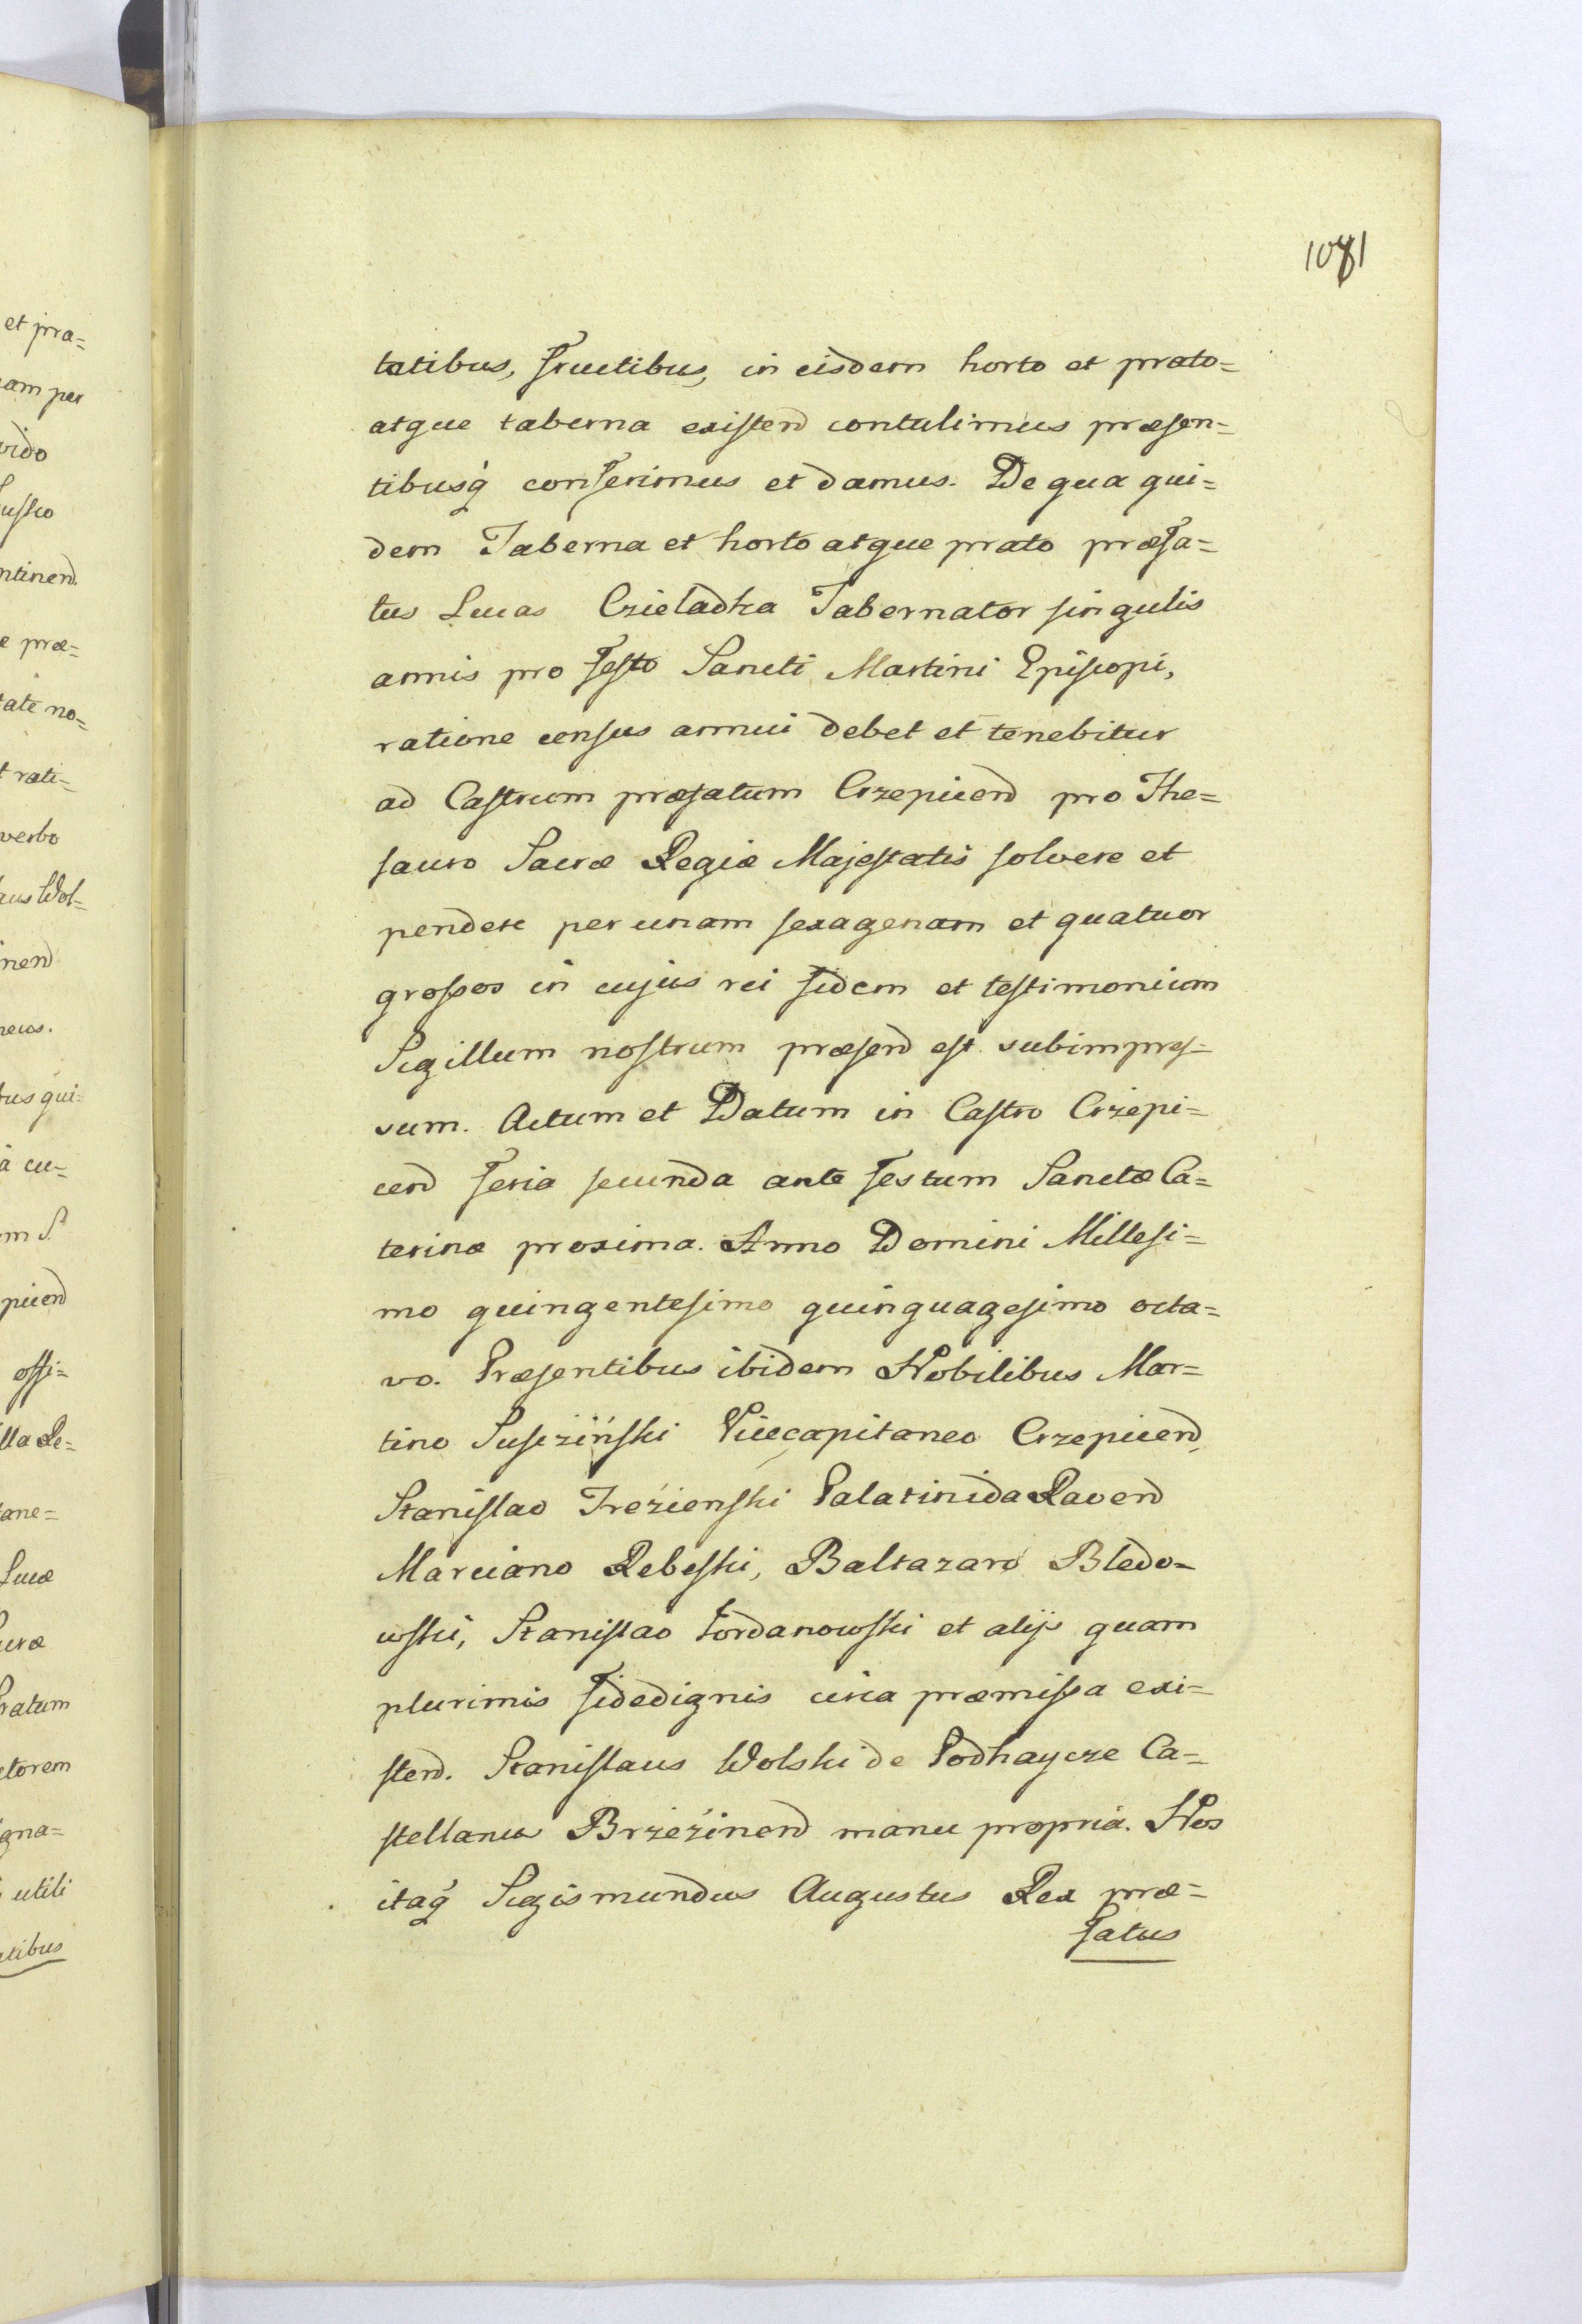 1081
tatibus, fructibus, in eisdem horto et prato
atque taberna existend contulimus præsen=
tibusq́ conferimus et damus. De qua qui=
dem Taberna et horto atque prato præfa=
tus Lucas Czieladka Tabernator singulis
annis pro festo Sancti Martini Episcopi,
ratione census annui debet et tenebitur
ad Castrum præfatum Crzepicend pro The=
sauro Sacræ Regiæ Majestatis solvere et
pendere per unam sexagenam et quatuor
grossos in cujus rei fidem et testimonium
Sigillum nostrum præsend est subimpres=
sum. Actum et Datum in Castro Crzepi=
cend feria secunda ante festum Sanctæ Ca=
terinæ proxima. Anno Domini Millesi=
mo quingentesimo quinquagesimo octa=
vo. Præsentibus ibidem Nobilibus Mar=
tino Suscziński Vicecapitaneo Crzepicend,
Stanislao Trezienski Palatinida Ravend
Marciano Rebeski, Baltazaro Bledo=
wski, Stanislao Jordanowski et alijs quam
plurimis fidedignis circa præmissa exi=
stend. Stanislaus Wolski de Podhaycze Ca=
stellanus Brzezinend manu propria. Nos
itaq́ Sigismundus Augustus Rex præ=
fatus
et pra=
eam per
vido
ntinend.
e præ=
tate no=
t rati=
verbo
aus Wol=
nend
neus.
bus qui=
a cu=
m S.
picend
offi=
lla Re=
tane=
Lucæ
cræ
ratum
ctorem
igna=
utili
ctibus